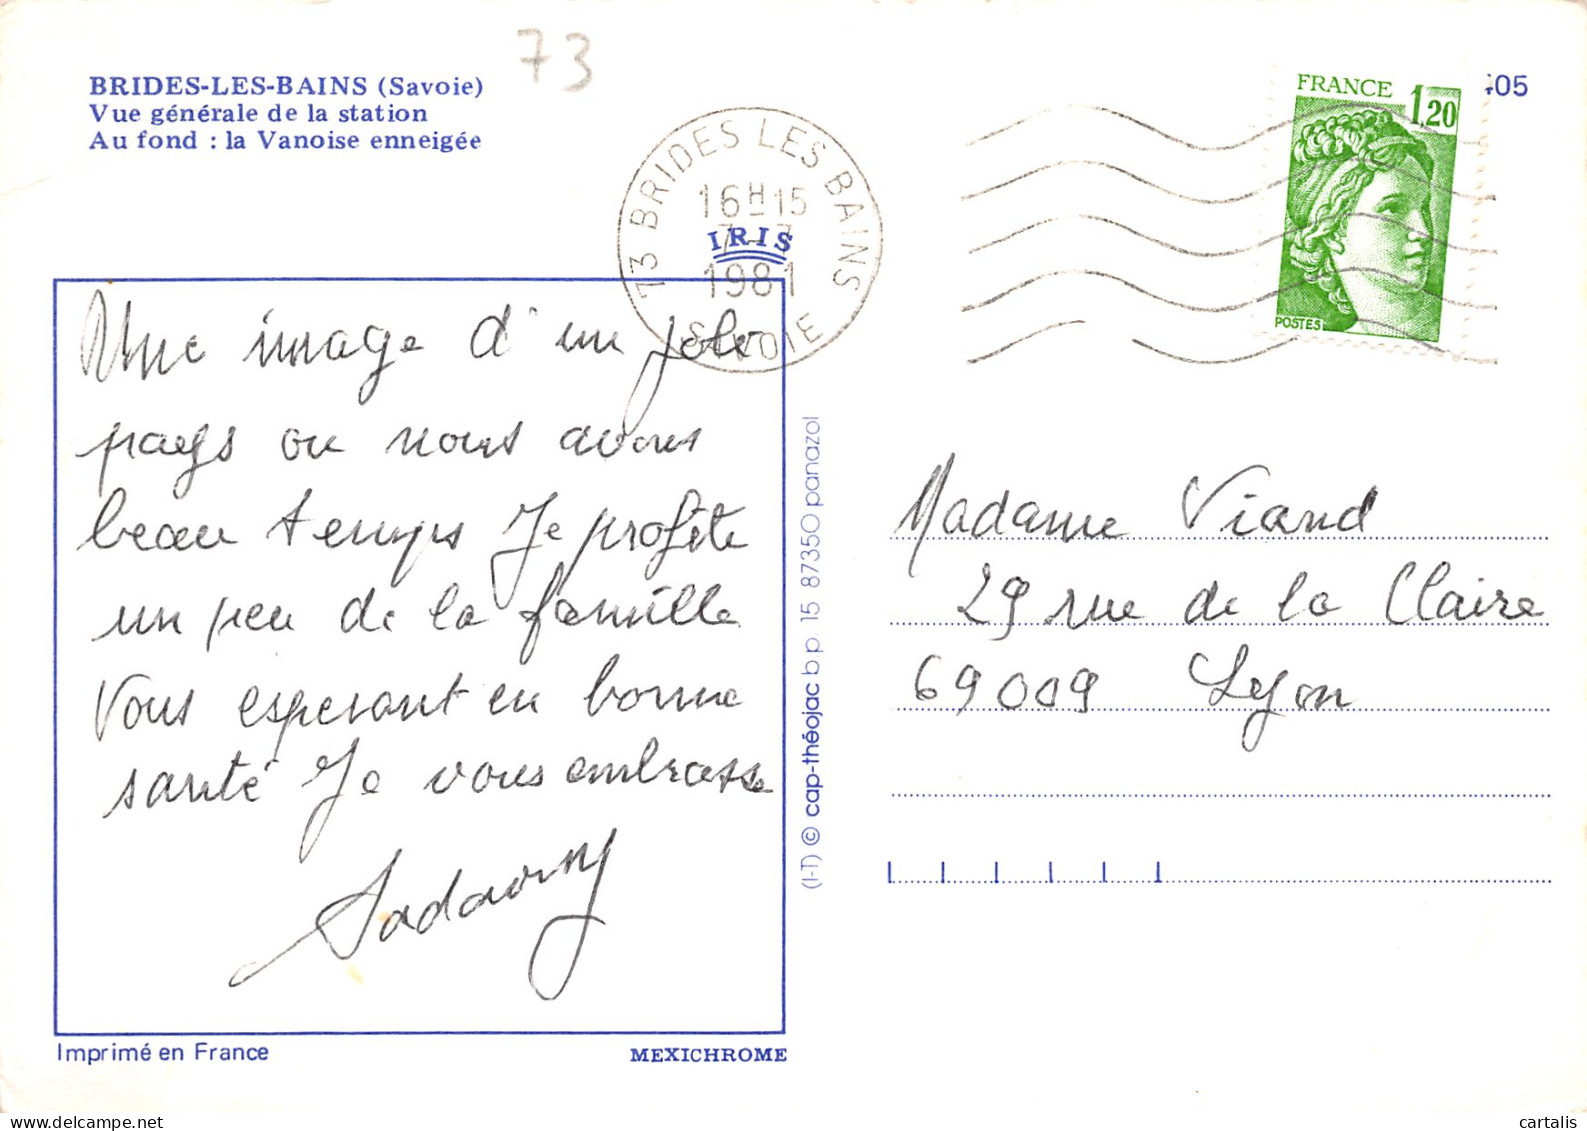 73
BRIDES-LES-BAINS (Savoie)
Vue générale de la station
Au fond : la Vanoise enneigée
73 BRIDES LES BAINS
16H15
7-7
1981
SAVOIE
IRIS
FRANCE
1,20
POSTES
405
Une image d'un joli
pays ou nous avons
beau temps Je profite
un peu de la famille
Vous esperant en bonne
santé Je vous embrasse
(I-T) © cap-théojac b.p. 15 87350 panazol
Madame Viand
29 rue de la Claire
69009 Lyon
Imprimé en France
MEXICHROME
cartalis